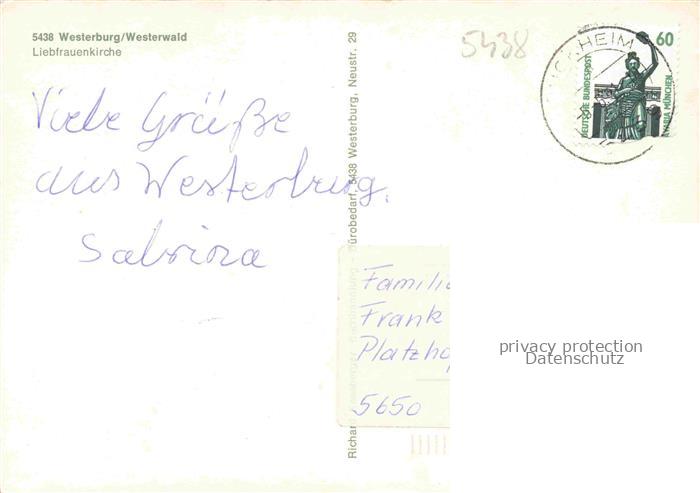 5438 Westerburg/Westerwald
Liebfrauenkirche
Viele Grüße
aus Westerburg.
Sabrina
Bürobedarf, 5438 Westerburg, Neustr. 29
5438
60
DEUTSCHE BUNDESPOST
BAVARIA MÜNCHEN
Familie
Frank
5650
privacy protection
Datenschutz